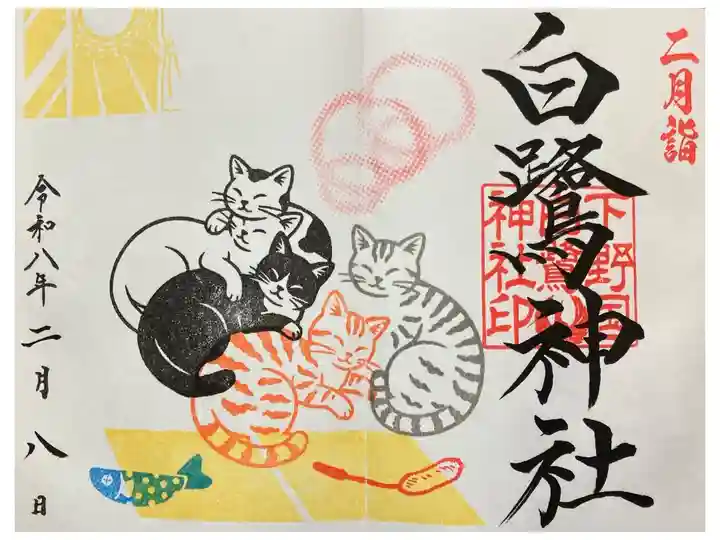 二月詣
白鷺神社
下野国
白鷺
神社印
令和八年二月八日